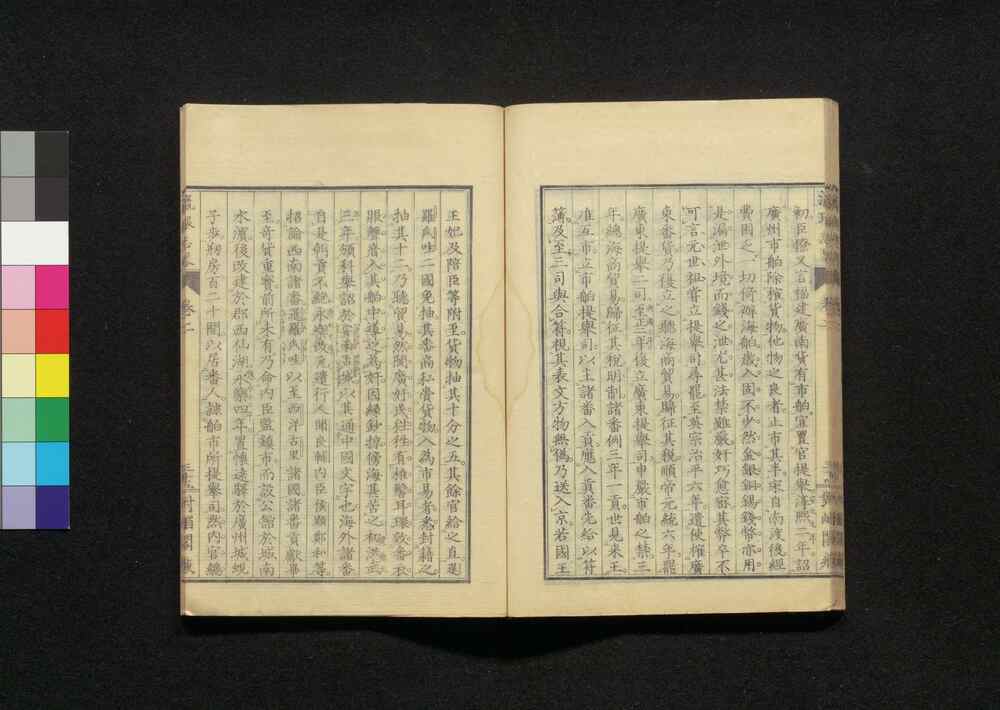 初臣僚又言福建廣南貨有市舶宜置官提舉淳熙二年詔
廣州市舶除榷貨物他物之良者止市其半宋自南渡後經
費困之一切倚辦海舶歲入固不少然金銀銅錫錢幣亦用
是漏泄外境而錢之泄尤甚法禁雖嚴奸巧愈密其弊卒不
可言元世祖嘗立提舉司尋罷至英宗治平六年遣使榷廣
東番貨乃復立之聽海商貿易歸征其稅順帝元統六年罷
廣東提舉二司至正二年復立廣東提舉司申嚴市舶之禁三
年總海商貿易歸征其稅明制諸番例三年一貢世見來王
准互市立市舶提舉司以主諸番入貢應入貢番先給以符
簿及至三司與合符視其表文方物無偽乃送入京若國王
王妃及陪臣等附至貨物抽其十分之五其餘官給之直暹
羅爪哇二國免抽其番商私賫貨物入為市易者悉封籍之
抽其十二乃聽貿易然閩廣奸民往往有椎髻耳環效番衣
服聲音入其舶中導之為奸因緣鈔掠傍海甚苦之和洪武
三年頒科舉詔於
以其通中國文字也海外諸番
自是朝貢不絕永樂改元遣行人聞良輔內臣侯顯鄭和等
招諭西南諸番暹羅爪哇以至西洋古里諸國諸番貢獻畢
至奇貨重寶前所未有乃命內臣監鎮市而設公館於城南
水濱後改建於郡西仙湖永樂四年置懷遠驛於廣州城蜆
子步剏房百二十間以居番人隸舶市所提舉司然內官總